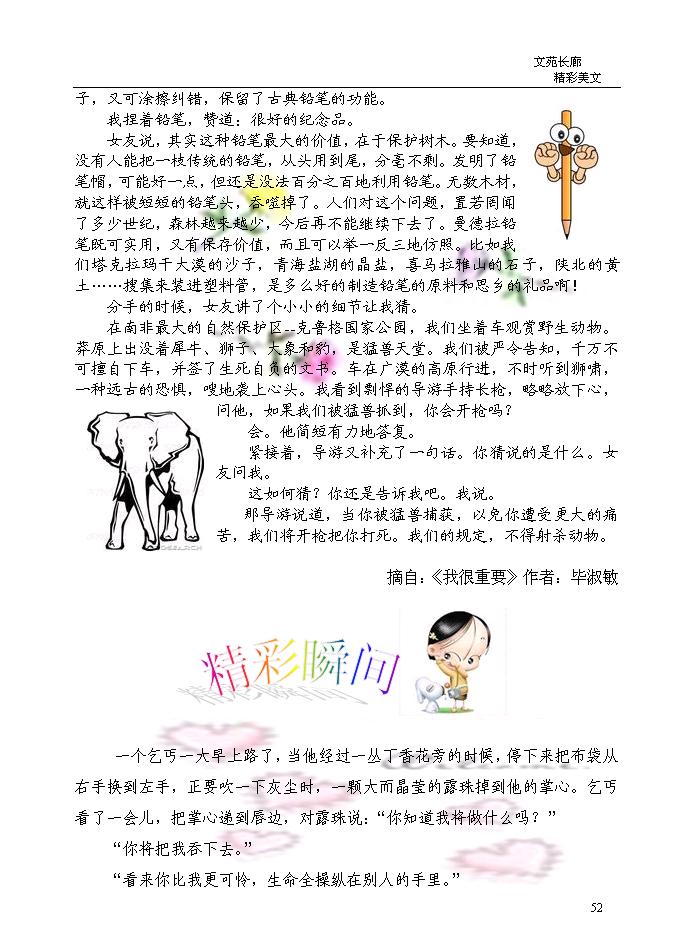 文苑长廊
精彩美文
子，又可涂擦纠错，保留了古典铅笔的功能。
我捏着铅笔，赞道：很好的纪念品。
女友说，其实这种铅笔最大的价值，在于保护树木。要知道，
没有人能把一枝传统的铅笔，从头用到尾，分毫不剩。发明了铅
笔帽，可能好一点，但还是没法百分之百地利用铅笔。无数木材，
就这样被短短的铅笔头，吞噬掉了。人们对这个问题，置若罔闻
了多少世纪，森林越来越少，今后再不能继续下去了。曼德拉铅
笔既可实用，又有保存价值，而且可以举一反三地仿照。比如我
们塔克拉玛干大漠的沙子，青海盐湖的晶盐，喜马拉雅山的石子，陕北的黄
土……搜集来装进塑料管，是多么好的制造铅笔的原料和思乡的礼品啊！
分手的时候，女友讲了个小小的细节让我猜。
在南非最大的自然保护区--克鲁格国家公园，我们坐着车观赏野生动物。
莽原上出没着犀牛、狮子、大象和豹，是猛兽天堂。我们被严令告知，千万不
可擅自下车，并签了生死自负的文书。车在广漠的高原行进，不时听到狮啸，
一种远古的恐惧，嗖地袭上心头。我看到剽悍的导游手持长枪，略略放下心，
问他，如果我们被猛兽抓到，你会开枪吗？
会。他简短有力地答复。
紧接着，导游又补充了一句话。你猜说的是什么。女
友问我。
这如何猜？你还是告诉我吧。我说。
那导游说道，当你被猛兽捕获，以免你遭受更大的痛
苦，我们将开枪把你打死。我们的规定，不得射杀动物。
摘自：《我很重要》作者：毕淑敏
精彩瞬间
一个乞丐一大早上路了，当他经过一丛丁香花旁的时候，停下来把布袋从
右手换到左手，正要吹一下灰尘时，一颗大而晶莹的露珠掉到他的掌心。乞丐
看了一会儿，把掌心递到唇边，对露珠说：“你知道我将做什么吗？”
“你将把我吞下去。”
“看来你比我更可怜，生命全操纵在别人的手里。”
52